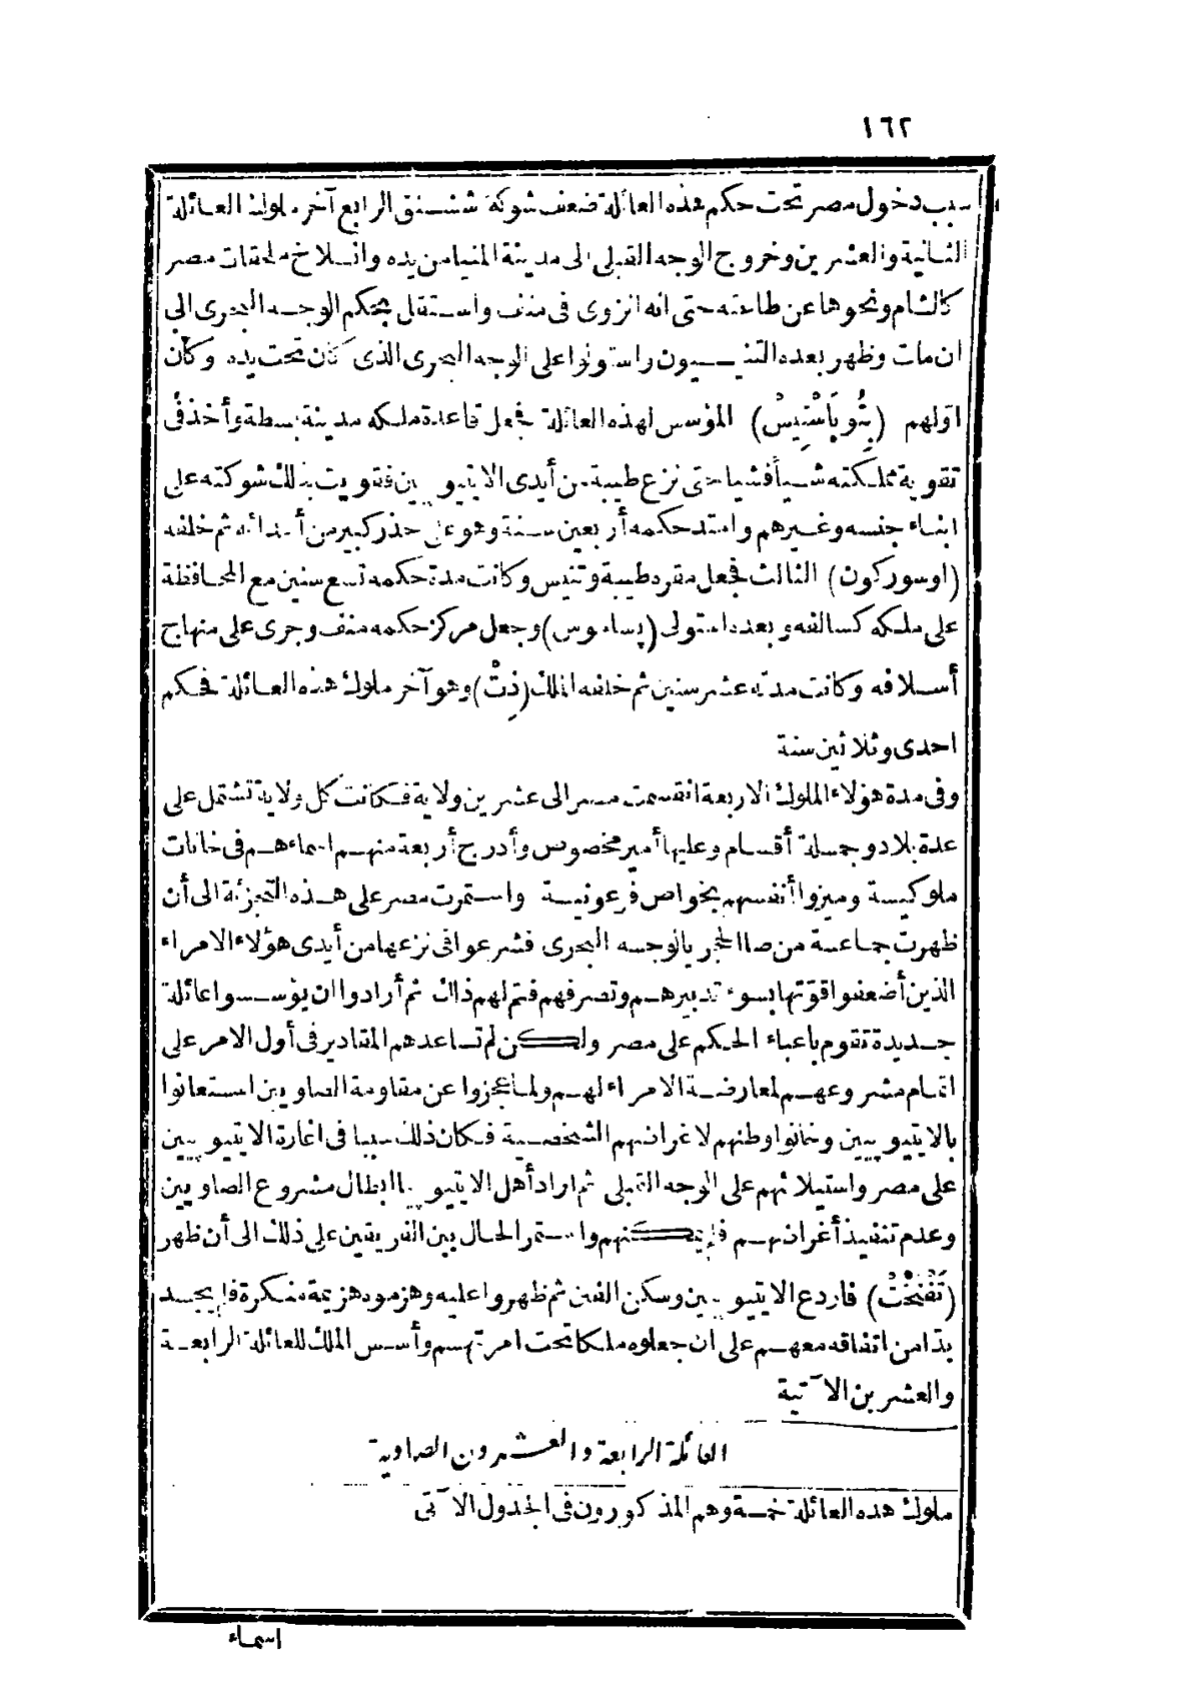 ١٦٢
سبب دخول مصر تحت حكم هذه العائلة ضعف شوكة ششنق الرابع آخر ملوك العائلة
الثانية والعشرين وخروج الوجه القبلى الى مدينة المنيا من يده وانسلاخ ملحقات مصر
كالشام ونحوها عن طاعته حتى انه انزوى فى منف واستقل بحكم الوجه البحرى الى
ان مات وظهر بعده التنيسيون واستولوا على الوجه البحرى الذى كان تحت يده وكان
اولهم (پتُوبَاسْتِيسْ) المؤسس لهذه العائلة فجعل قاعدة ملكه مدينة بسطة وأخذ فى
تقوية مملكته شيأ فشيا حتى نزع طيبة من أيدى الايتيوپيين فقويت بذلك شوكته على
ابناء جنسه وغيرهم وامتد حكمه أربعين سنة وهو على حذر كبير من أعدائه ثم خلفه
(اوسوركون) الثالث فجعل مقره طيبة وتنيس وكانت مدة حكمه تسع سنين مع المحافظة
على ملكه كسالفه وبعده استولى (پساموس) وجعل مركز حكمه منف وجرى على منهاج
أسلافه وكانت مدته عشر سنين ثم خلفه الملك (ذِتْ) وهو آخر ملوك هذه العائلة فحكم
احدى وثلاثين سنة
وفى مدة هؤلاء الملوك الاربعة انقسمت مصر الى عشرين ولاية فكانت كل ولاية تشتمل على
عدة بلاد وجملة أقسام وعليها أمير مخصوص وأدرج أربعة منهم اسماءهم فى خانات
ملوكية وميزوا أنفسهم بخواص فرعونية واستمرت مصر على هذه التجزئة الى أن
ظهرت جماعة من صا الحجر بالوجه البحرى فشرعوا فى نزعها من أيدى هؤلاء الامراء
الذين أضعفوا قوّتها بسوء تدبيرهم وتصرفهم فتم لهم ذلك ثم أرادوا ان يؤسسوا عائلة
جديدة تقوم باعباء الحكم على مصر ولكن لم تساعدهم المقادير فى أول الامر على
اتمام مشروعهم لمعارضة الامراء لهم ولما عجزوا عن مقاومة الصاويين استعانوا
بالايتيوپيين وخانوا وطنهم لاغراضهم الشخصية فكان ذلك سببا فى اغارة الايتيوپيين
على مصر واستيلائهم على الوجه القبلى ثم اراد أهل الايتيوپيا ابطال مشروع الصاويين
وعدم تنفيذ أغراضهم فلم يمكنهم واستمر الحال بين الفريقين على ذلك الى أن ظهر
(تَفْنَخْتْ) فاردع الايتيوپيين وسكن الفتن ثم ظهروا عليه وهزموه هزيمة منكرة فلم يجد
بدّا من اتفاقه معهم على ان جعلوه ملكا تحت امرتهم وأسس الملك للعائلة الرابعة
والعشرين الآتية
العائلة الرابعة والعشرون الصاوية
ملوك هذه العائلة خمسة وهم المذكورون فى الجدول الآتى
اسماء